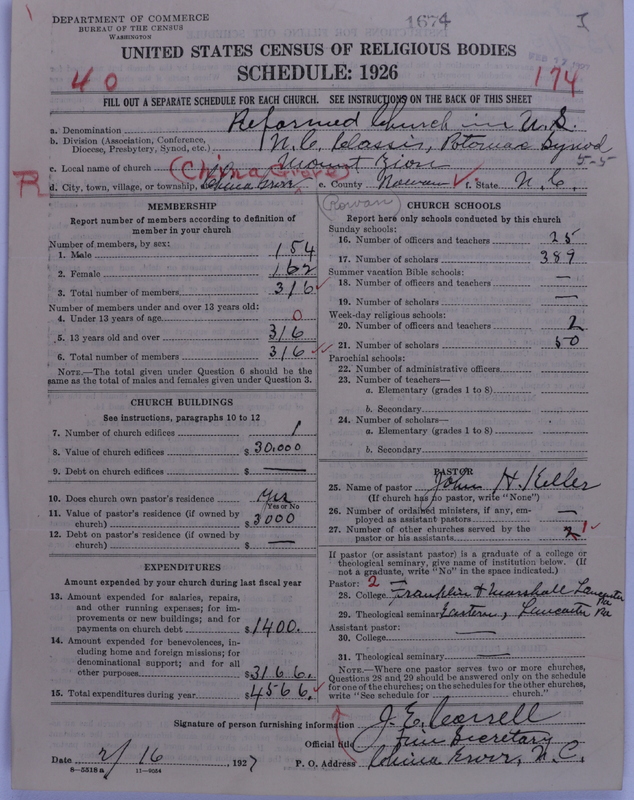 DEPARTMENT OF COMMERCE
BUREAU OF THE CENSUS
WASHINGTON
1674
I
UNITED STATES CENSUS OF RELIGIOUS BODIES
SCHEDULE: 1926
40
174
FILL OUT A SEPARATE SCHEDULE FOR EACH CHURCH. SEE INSTRUCTIONS ON THE BACK OF THIS SHEET
a. Denomination Reformed Church in U.S.
b. Division (Association, Conference, Diocese, Presbytery, Synod, etc.) N.C. Classis, Potomac Synod
5-5
c. Local name of church Mount Zion
(China Grove)
R
d. City, town, village, or township, China Grove e. County Rowan f. State N.C.
(Rowan)
MEMBERSHIP
Report number of members according to definition of member in your church
Number of members, by sex:
1. Male 154
2. Female 162
3. Total number of members 316
Number of members under and over 13 years old:
4. Under 13 years of age 0
5. 13 years old and over 316
6. Total number of members 316
NOTE.—The total given under Question 6 should be the same as the total of males and females given under Question 3.
CHURCH BUILDINGS
See instructions, paragraphs 10 to 12
7. Number of church edifices 1
8. Value of church edifices $ 30,000
9. Debt on church edifices $ —
10. Does church own pastor's residence Yes
Yes or No
11. Value of pastor's residence (if owned by church) $ 3000
12. Debt on pastor's residence (if owned by church) $ —
EXPENDITURES
Amount expended by your church during last fiscal year
13. Amount expended for salaries, repairs, and other running expenses; for improvements or new buildings; and for payments on church debt $ 1400.
14. Amount expended for benevolences, including home and foreign missions; for denominational support; and for all other purposes $ 3166.
15. Total expenditures during year $ 4566.
CHURCH SCHOOLS
Report here only schools conducted by this church
Sunday schools:
16. Number of officers and teachers 25
17. Number of scholars 389
Summer vacation Bible schools:
18. Number of officers and teachers —
19. Number of scholars —
Week-day religious schools:
20. Number of officers and teachers 2
21. Number of scholars 50
Parochial schools:
22. Number of administrative officers
23. Number of teachers—
a. Elementary (grades 1 to 8)
b. Secondary
24. Number of scholars—
a. Elementary (grades 1 to 8)
b. Secondary
PASTOR
25. Name of pastor John H. Keller
(If church has no pastor, write "None")
26. Number of ordained ministers, if any, employed as assistant pastors —
27. Number of other churches served by the pastor or his assistants 2 1
If pastor (or assistant pastor) is a graduate of a college or theological seminary, give name of institution below. (If not a graduate, write "No" in the space indicated.)
Pastor: 2
28. College Franklin & Marshall Lancaster Pa
29. Theological seminary Eastern, Lancaster Pa
Assistant pastor:
30. College —
31. Theological seminary —
NOTE.—Where one pastor serves two or more churches, Questions 28 and 29 should be answered only on the schedule for one of the churches; on the schedules for the other churches, write "See schedule for church."
Signature of person furnishing information J. E. Correll
Official title Fin Secretary
Date 2/16 1927 P. O. Address China Grove, N.C.
8—5518 a 11—9034